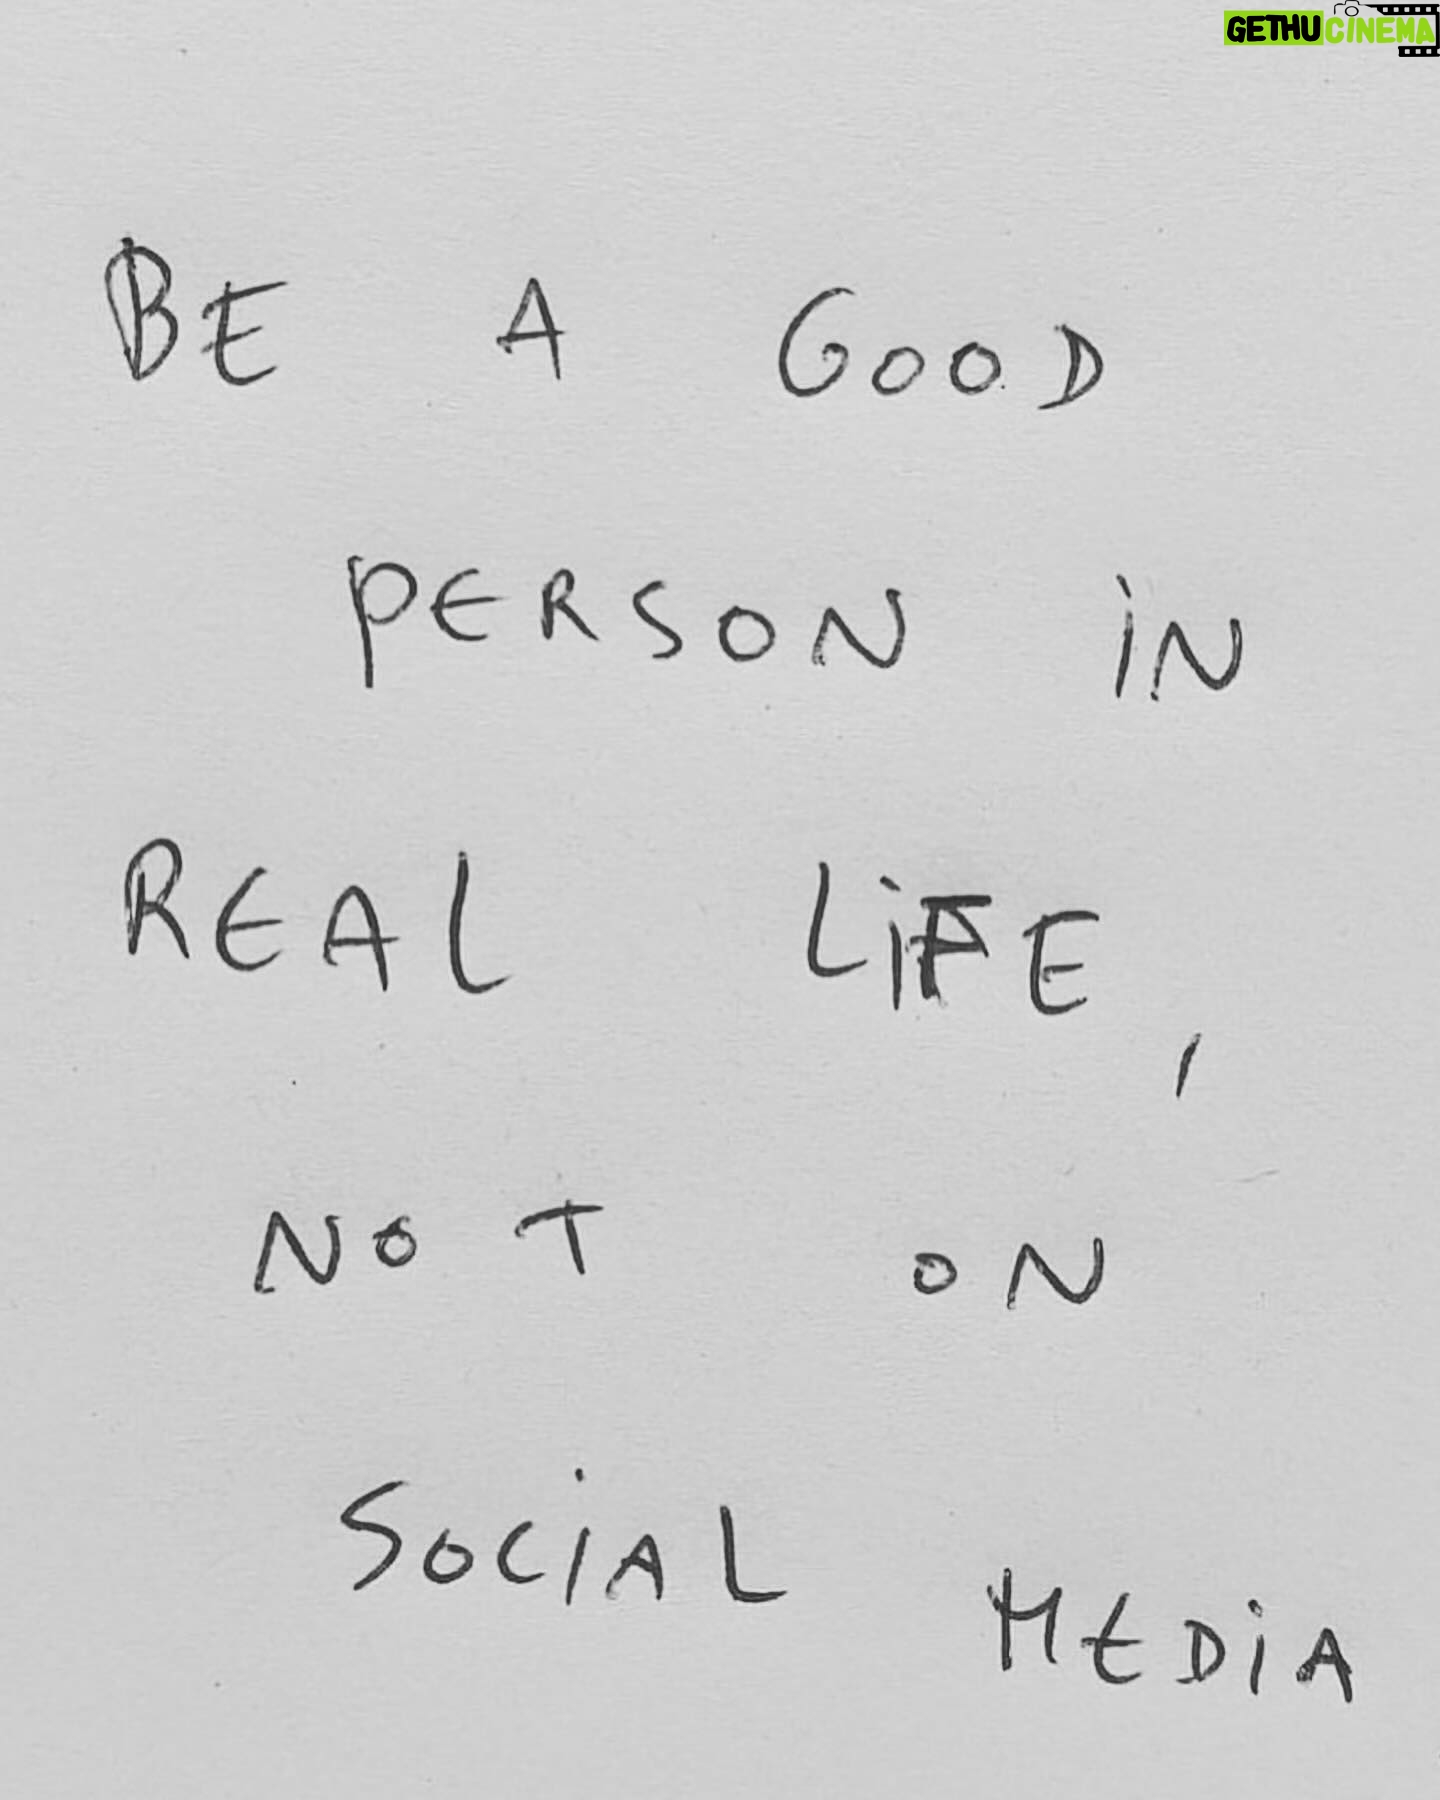 GETHUCINEMA
BE A GOOD
PERSON iN
REAL LiFE,
NOT ON
SOCiAL MEDiA